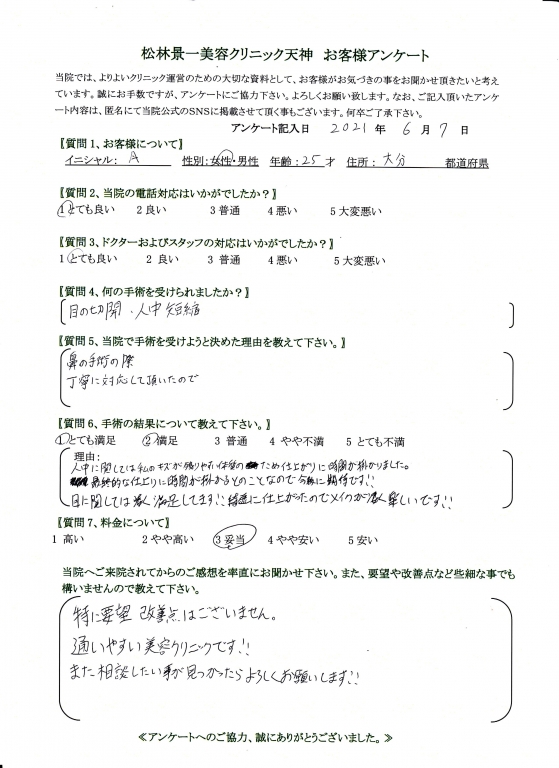 松林景一美容クリニック天神　お客様アンケート
当院では、よりよいクリニック運営のための大切な資料として、お客様がお気づきの事をお聞かせ頂きたいと考え
ています。誠にお手数ですが、アンケートにご協力下さい。よろしくお願い致します。なお、ご記入頂いたアンケ
ート内容は、匿名にて当院公式のSNSに掲載させて頂く事もございます。何卒ご了承下さい。
アンケート記入日　2021 年 6 月 7 日
〖質問1、お客様について〗
イニシャル： A　性別：女性・男性　年齢：25 才　住所： 大分　都道府県
〖質問2、当院の電話対応はいかがでしたか？〗
1 とても良い　2 良い　3 普通　4 悪い　5 大変悪い
〖質問3、ドクターおよびスタッフの対応はいかがでしたか？〗
1 とても良い　2 良い　3 普通　4 悪い　5 大変悪い
〖質問4、何の手術を受けられましたか？〗
目の切開・人中短縮
〖質問5、当院で手術を受けようと決めた理由を教えて下さい。〗
鼻の手術の際
丁寧に対応して頂いたので
〖質問6、手術の結果について教えて下さい。〗
1 とても満足　2 満足　3 普通　4 やや不満　5 とても不満
理由：
人中に関しては私のキズが残りやすい体質のため仕上がりに時間が掛かりました。
最終的な仕上りに時間が掛かるとのことなので今後に期待です!!
目に関しては凄く満足してます!!綺麗に仕上がったのでメイクが凄く楽しいです!!
〖質問7、料金について〗
1 高い　2 やや高い　3 妥当　4 やや安い　5 安い
当院へご来院されてからのご感想を率直にお聞かせ下さい。また、要望や改善点など些細な事でも
構いませんので教えて下さい。
特に要望 改善点はございません。
通いやすい美容クリニックです!!
また相談したい事が見つかったらよろしくお願いします!!
≪アンケートへのご協力、誠にありがとうございました。≫